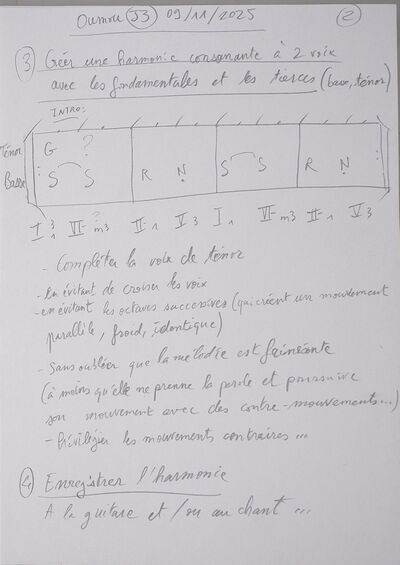 Oumou J3 09/11/2025 2
3 Créer une harmonie consonante à 2 voix
avec les fondamentales et les tierces (basse, ténor)
INTRO:
Ténor G ?
Basse S S R N S S R N
I 3 1 VI- m3 ? II-1 V3 I1 VI-m3 II-1 V3
- Compléter la voix de ténor
- En évitant de croiser les voix
- en évitant les octaves successives (qui créent un mouvement
parallèle, froid, identique)
- Sans oublier que la mélodie est fainéante
(à moins qu'elle ne prenne la parole et poursuive
son mouvement avec des contre-mouvements...)
- Privilégier les mouvements contraires...
4 Enregistrer l'harmonie
A la guitare et/ou au chant...